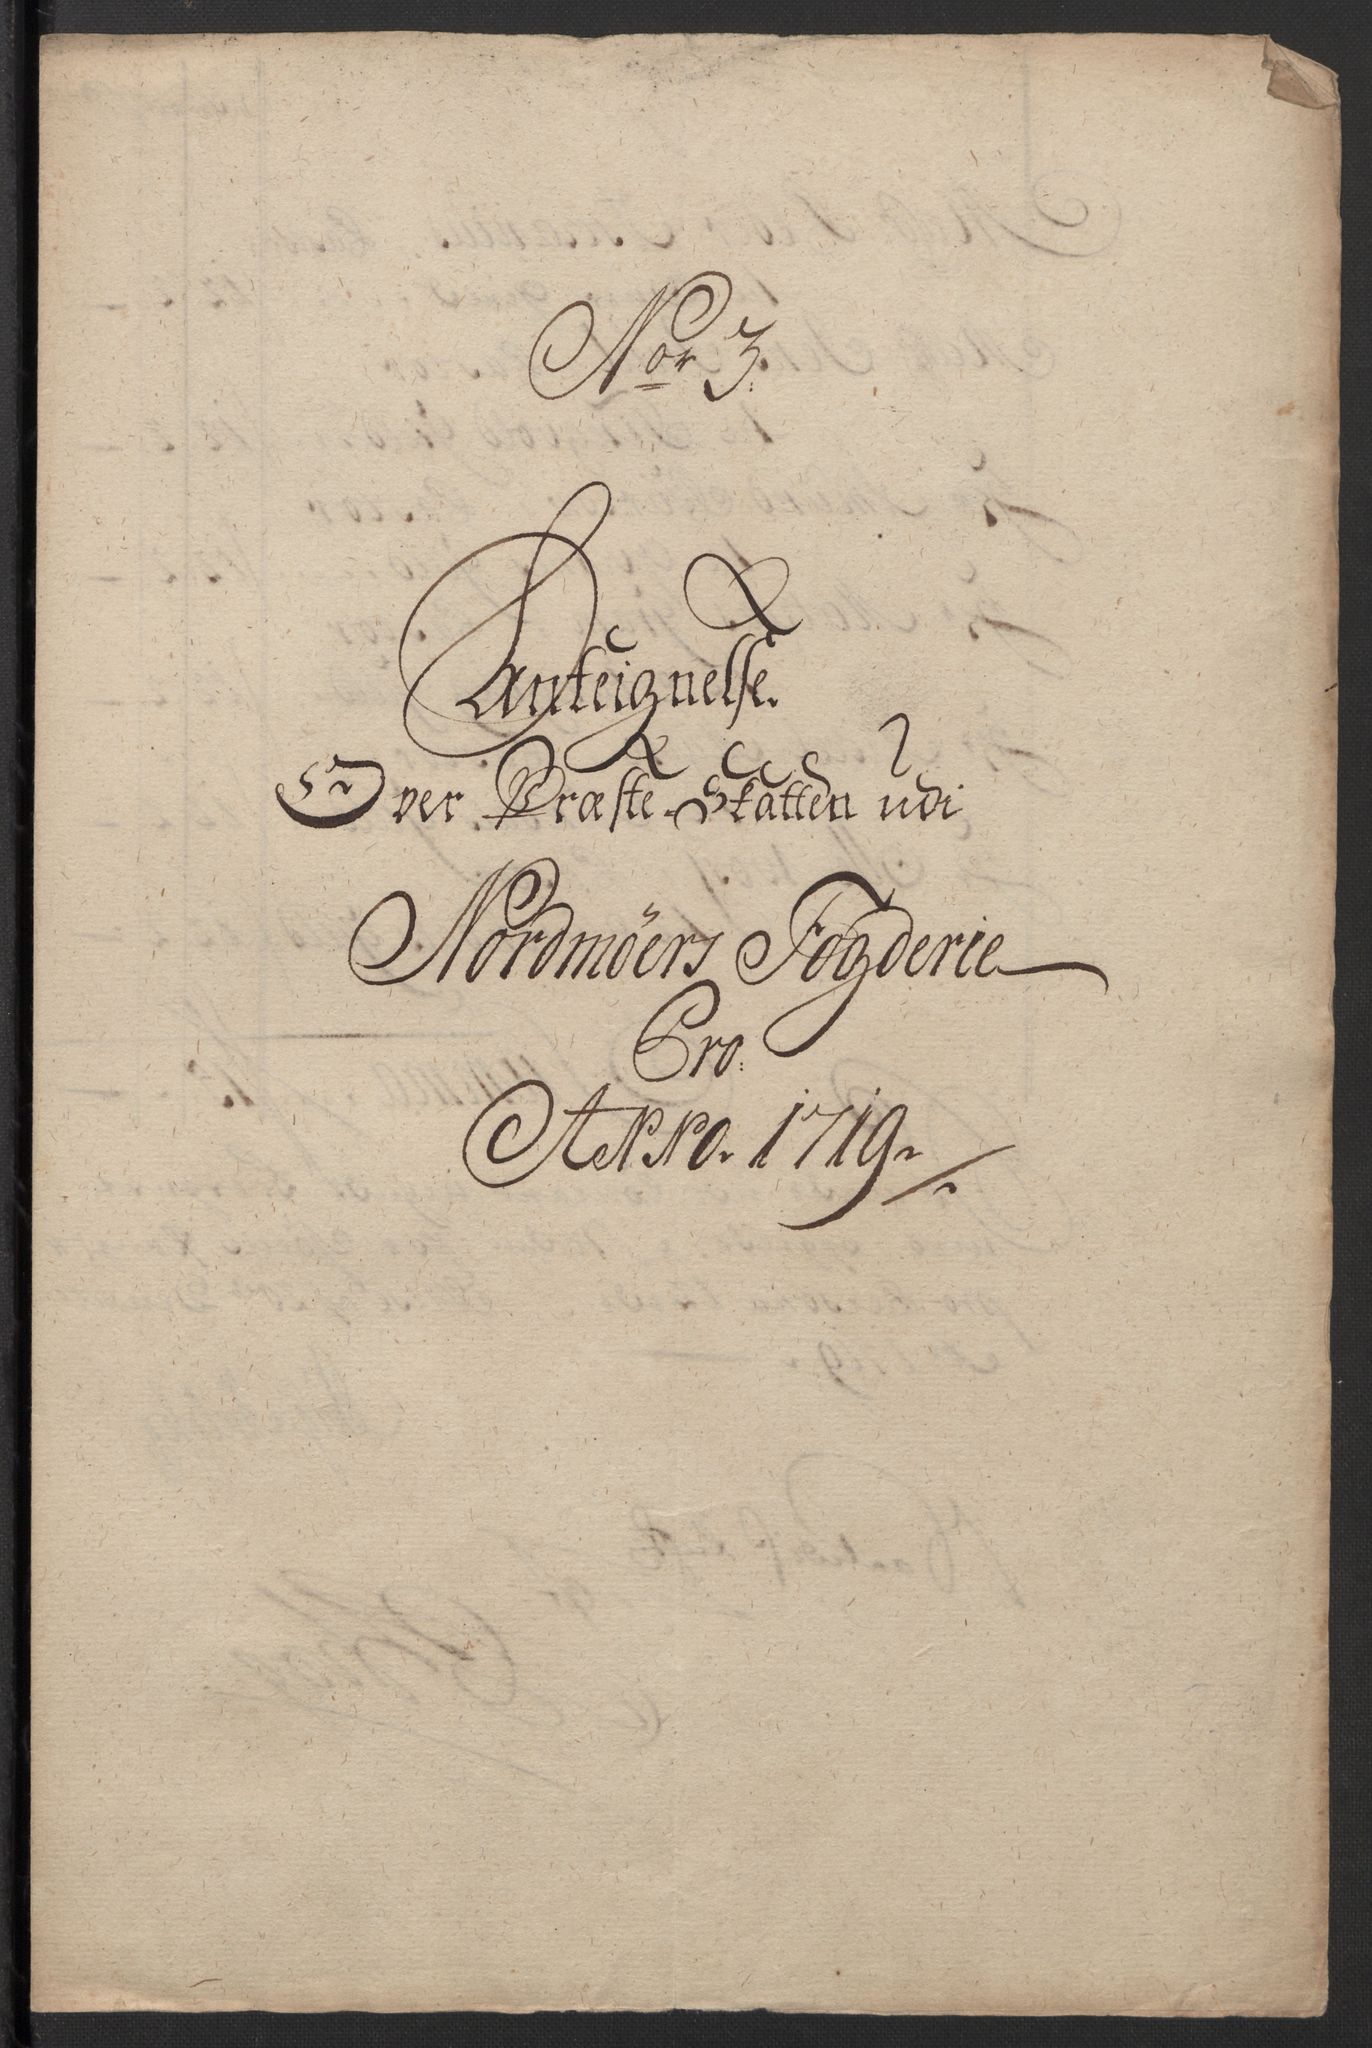 Nor 3.
Anteignelse.
Over Præste-Skatten udi
Nordmöers Fogderie
Pro.
ANNO. 1719.